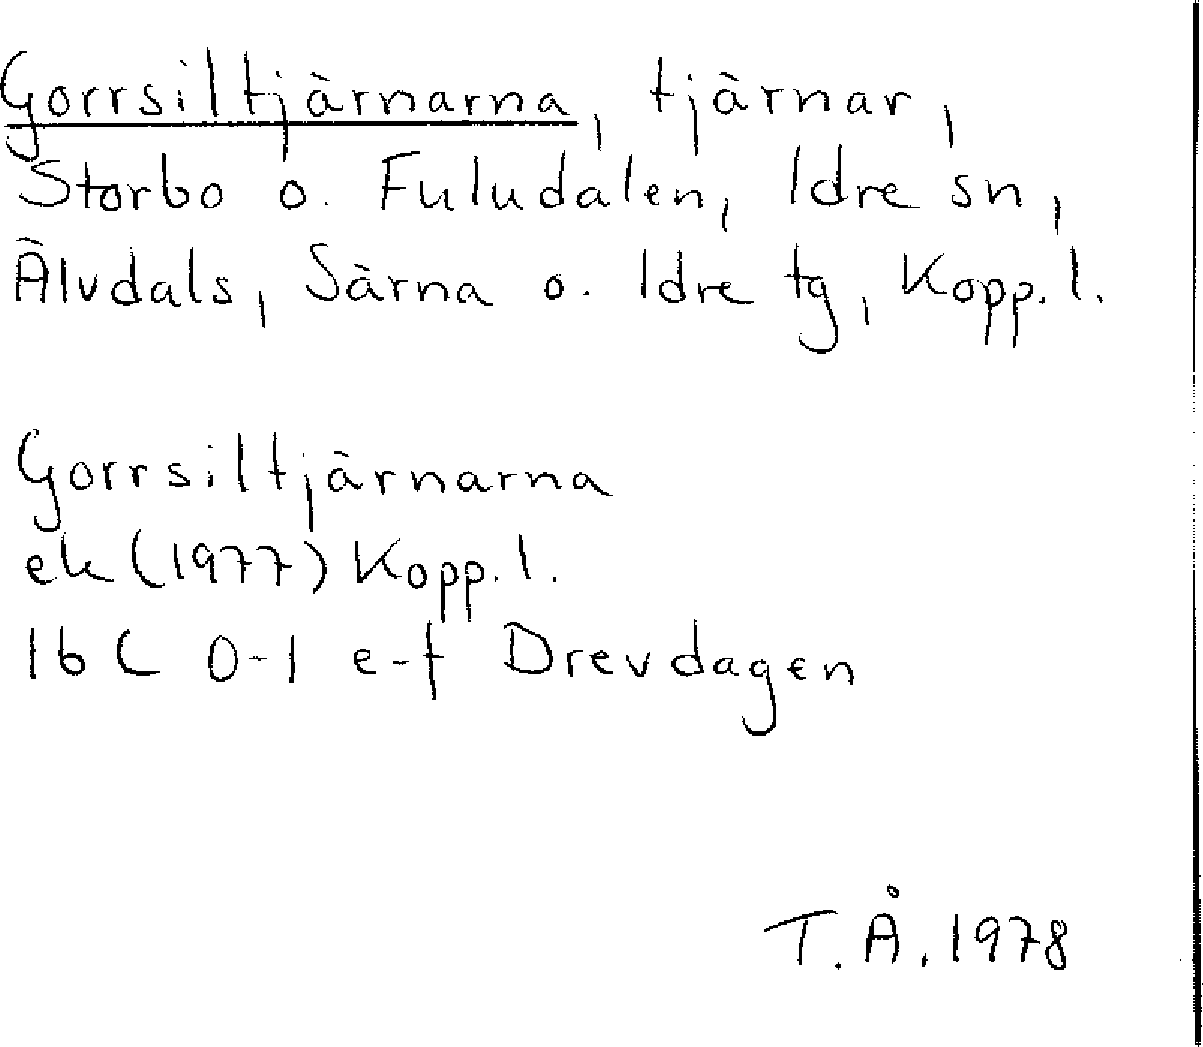 Gorrsiltjärnarna, tjärnar,
Storbo o. Fuludalen, Idre sn,
Älvdals, Särna o. Idre tg, Kopp. l.
Gorrsiltjärnarna
ek (1977) Kopp. l.
16 C 0-1 e-f Drevdagen
T. Å. 1978